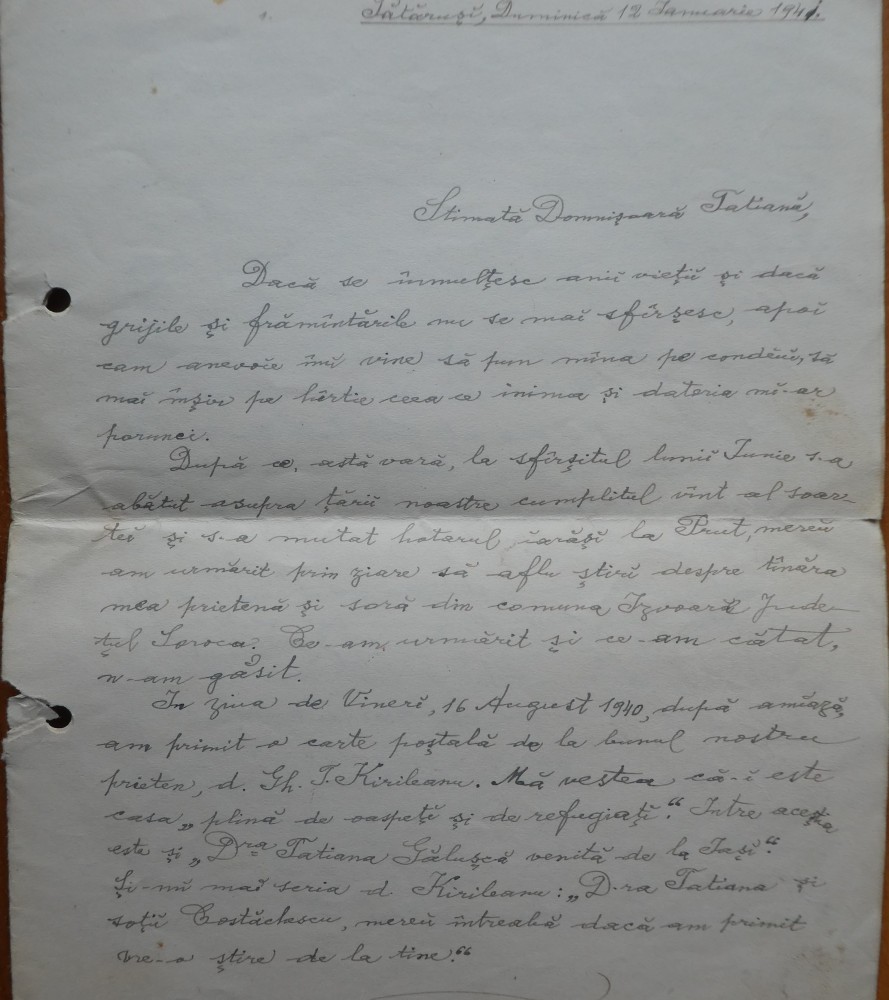 Tătăruși, Duminică 12 Ianuarie 1941.
Stimată Domnișoară Tatiană,
Dacă se înmulțesc anii vieții și dacă
grijile și frămîntările nu se mai sfîrșesc, apoi
cam anevoie îmi vine să pun mîna pe condeiu, să
mai înșir pe hîrtie ceea ce inima și datoria mi-ar
porunci.
După ce, astă vară, la sfîrșitul lunii Iunie s-a
abătut asupra țării noastre cumplitul vînt al soar-
tei și s-a mutat hotarul iarăși la Prut, mereu
am urmărit prin ziare să aflu știri despre tînăra
mea prietenă și soră din comuna Izvoare Jude-
țul Soroca. Ce-am urmărit și ce-am cătat,
n-am găsit.
In ziua de Vineri, 16 August 1940, după amiază,
am primit o carte poștală de la bunul nostru
prieten, d. Gh. T. Kirileanu. Mă vestea că-i este
casa „plină de oaspeți și de refugiați". Intre aceștia
este și „Dra Tatiana Gălușcă venită de la Iași".
Și-mi mai scria d. Kirileanu: „D-ra Tatiana și
soții Costăchescu, mereu întreabă dacă am primit
vre-o știre de la tine."